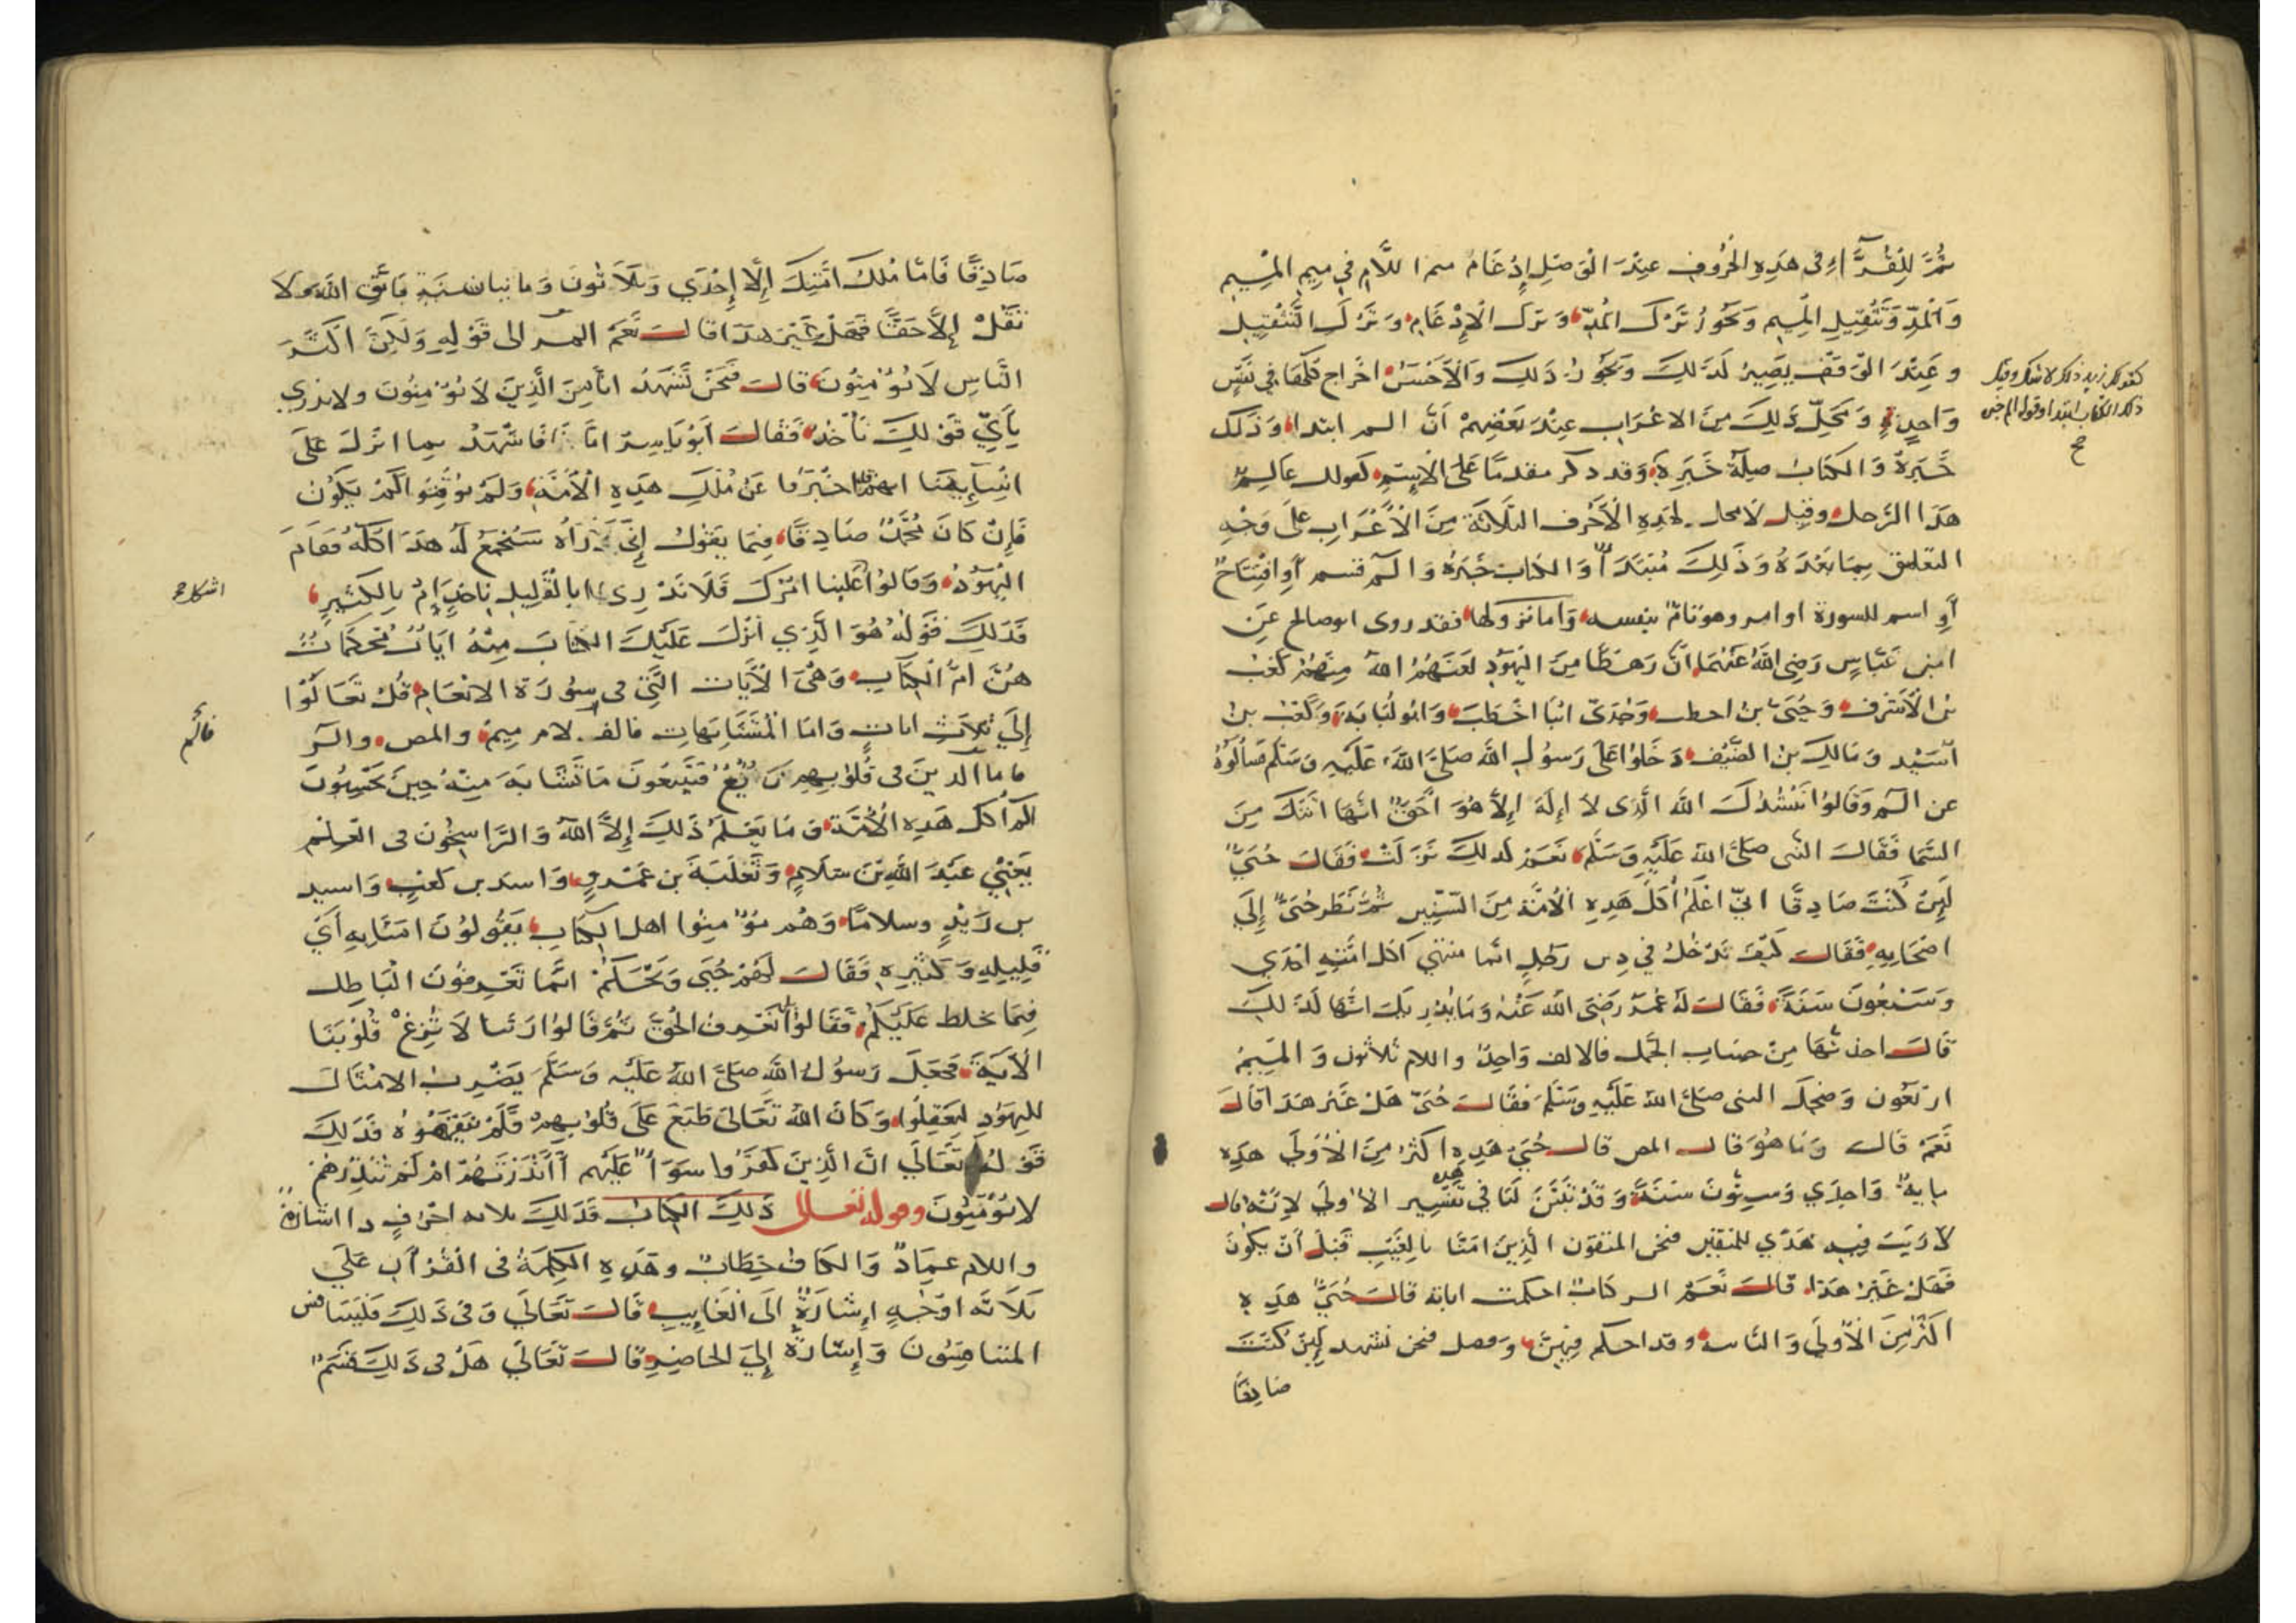 ثُمَّ لِلْقُرَّآءِ فى هَذِهِ الْحُرُوفِ عِنْدَ الْوَصْلِ إِدْغَامُ اللَّامِ فِي مِيمِ الْمِيمِ
وَالْمَدِّ وَتَثْقِيلِ الْمِيمِ وَيَجُوزُ تَرْكُ الْمَدِّ وَتَرْكُ الْإِدْغَامِ وَتَرْكُ التَّثْقِيلِ
وعِنْدَ الْوَقْفِ يَصِيرُ كَذَلِكَ وَيَجُوزُ ذَلِكَ وَالْأَحْسَنُ اخْرَاج كُلِّهَا فِي نَفَسٍ
وَاحِدٍ وَمَحَلُّ ذَلِكَ مِنَ الاعْرَابِ عِنْدَ بَعْضِهِمْ أَنَّ الم ابتدا وَذَلك
خَبَرَهُ وَالْكِتَابُ صِلَةُ خَبَرِهِ وَقد ذكر مقدمًا عَلَى الْاِسْمِ كقولك عَالِمٌ
هَذَا الرَّجل وقيل لامحل لِهَذِهِ الْأَحْرُف الثَّلَاثَة مِنَ الْأَعْرَابِ عَلَى وَجْهِ
التعليق بِمَا بَعْدَهُ وَذَلِكَ مُبْتَدَأ وَالكتاب خَبَرُهُ وَالم قسم أَوِ افْتِتَاحٌ
أَوِ اسم للسورة او امر وهو تَامٌّ بنفسه وَاما نزولها فقد روى ابوصالح عَنِ
ابنِ عَبَّاسٍ رَضِيَ اللَّهُ عَنْهُمَا انَّ رَهْطًا مِنَ الْيَهُودِ لَعَنَهُمُ اللهُ مِنْهُمْ كَعْبُ
بْنُ الْأَشْرَفِ وَحُيَيُّ بْنُ اخطب وَجُدَيُّ ابْنَا اخْطَبَ وَابُو لُبَابَةَ وَكَعْبُ بْنُ
اُسَيْدٍ وَمَالِكُ بْنُ الضَّيْفِ دَخَلُوا عَلَى رَسُولِ اللَّهِ صَلَّى اللَّهُ عَلَيْهِ وَسَلَّمَ فَسَأَلُوهُ
عن الم وَقَالُوا نَنْشُدُكَ اللَّهَ الَّذِى لَا إِلَهَ إِلَّا هُوَ أَحَقٌّ انَّهَا اَتَتْكَ مِنَ
السَّمَا فَقَالَ النَّبِى صَلَّى اللهُ عَلَيْهِ وَسَلَّمَ نَعَمْ كَذَلِكَ نَزَلَتْ فَقَالَ حُيَيٌّ
لَئِنْ كُنْتَ صَادِقًا انِّي اعْلَمُ أُكُلَ هَذِهِ الْأُمَّةِ مِنَ السِّنِينِ ثُمَّ نَظَرَ حُيَيٌّ إِلَى
اصْحَابِهِ فَقَالَ كَيْفَ نَدْخُلُ فِي دِينِ رَجُلٍ انَّما منتهي اكل امَّتِهِ احْدَي
وَسَبْعُونَ سَنَةً فَقَالَ لَهُ عُمَرُ رَضِىَ اللهُ عَنْهُ وَمَا يُدْرِيكَ انَّهَا كَذَلِكَ
قَالَ اخذتُهَا مِنْ حِسَابِ الجُمَّلِ فَالالف وَاحِدٌ واللام ثلاثون وَالْمِيمُ
ارْبَعُون وَضَحِكَ النبى صَلَّى اللهُ عَلَيْهِ وَسَلَّمَ فَقَالَ حُيَيٌّ هَلْ غَيْرُ هَذَا قَالَ
نَعَمْ قَالَ وَمَا هُوَ قَالَ المص قَالَ حُيَيٌّ هَذِهِ اكْثَرُ مِنَ الْأُولَي هَذِهِ
مايهٌ وَاحِدَي وَسِتُّونَ سَنَةً وَقَدْ تَبَيَّنَ لَنَا فِي تَفْسِيرِ هَذِهِ الأُولَي لِاَنَّهُ قال
لَا رَيْبَ فِيهِ هُدًي للمتقين فنحن المتقون الَّذِينَ امَنَّا بِالْغَيْبِ قَبْلَ أَنْ يَكُونَ
فَهَلْ غَيْرُ هَذَا قَالَ نَعَمْ الر كتابٌ احكمت اياته قَالَ حُيَيٌّ هَذِهِ
اكثَرُ مِنَ الْأُولَي وَالثَّانية وقد احكم فِيهِنَّ وَفصل فنحن نشهد لَئِنْ كُنْتَ
صَادِقًا
كقولك زيد ذلك لاشك وقيل
ذلك الكتاب ابتدا وقوله الم خبر
صح
صَادِقًا فَامَّا مُلْكُ امَّتِكَ إِلَّا إِحْدَي وَثَلَاثُونَ وَمايتان سَنَةٍ فَاتَّقِ اللَّهَ ولَا
تَقُلْ إِلَّا حَقًّا فَهَلْ غَيْرَ هَذَا قَالَ نَعَمْ المر الى قَوْلِهِ وَلَكِنَّ اَكْثَرَ
النَّاسِ لَا يُؤْمِنُونَ قَالَ فَنَحْنُ نَشْهَدُ انَّا مِنَ الَّذِينَ لَا يُؤْمِنُونَ ولاندري
بِأَيِّ قَوْلِكَ نَأْخُذُ فَقَالَ اَبُو يَاسِرٍ امَّا انَا فَاَشْهَدُ بما انزلَ عَلَى
انْبِيَآئِنَا انهم اخْبَرُنا عَنْ مُلْكِ هَذِهِ الْأُمَّةِ وَلَمْ يُوَقِّتُوا كَمْ يَكُونُ
فَإِنْ كَانَ مُحَمَّدٌ صَادِقًا فِيمَا يَقُولُ إِنِّي اَرَاهُ سَيُجْمَعُ لَهُ هَذَا كُلُّهُ فَقَامَ
الْيَهُودُ وَقَالُوا اشكل علينا امْرُكَ فَلَا نَدْرِى ابالْقَلِيلِ نَاخُذُ اَمْ بِالْكَثِيرِ
فَذَلِكَ قَوْلُهُ هُوَ الَّذِي اَنْزَلَ عَلَيْكَ الكتَابَ مِنْهُ ايَاتٌ مُحْكَمَاتٌ
هُنَّ امُّ الْكِتَابِ وَهُىَ الْأيَات الَّتِى فى سُورَة الانْعَام قُلْ تَعَالَوْا
إِلَى ثَلَاثِ ايات وَامَا الْمُتَشَابِهَاتِ فالف لام مِيم والمص والر
فاما الذينَ فى قُلُوبِهِمْ زَيْغٌ فَيَتَّبِعُونَ مَا تَشَابَهَ مِنْهُ حِينَ يَحْسِبُونَ
كم اكل هَذِهِ الْأُمَّةِ وَمَا يَعْلَمُ ذَلِكَ إِلَّا اللَّهُ وَالرَّاسِخُونَ فى الْعِلْمِ
يَعْنِي عَبْدَ اللَّهِ بْنَ سَلَامٍ وَثَعْلَبَةَ بن عَمْرٍو وَاسد بن كعبٍ وَاسيد
بن زَيْدٍ وسلامًا وَهُم مُؤْمِنُوا اهل الكتَابِ يَقُولُونَ امَنَّا بِهِ أَي
قَلِيلِهِ وَكَثِيرِهِ فَقَالَ لَهُمْ حُيَي وَيْحَكُمْ انَّمَا تَعْرِفُونَ الْبَاطِل
فِيمَا خلط عَلَيْكُمْ فَقَالُوا بَلْ نَعْرِفُ الْحَقَّ ثُمَّ قَالُوا رَبَّنا لَا تُزِغْ قُلُوبَنَا
الْآيَةَ فَجَعَلَ رَسُولُ اللَّهِ صَلَّى اللَّهُ عَلَيْهِ وَسَلَّمَ يَضْرِبُ الامْثَالَ
للْيَهُودِ لِيَعْقِلُوا وَكَانَ اللَّهُ تَعَالَى طَبَعَ عَلَى قُلُوبِهِمْ فَلَمْ يَفْقَهُوهُ فَذَلِكَ
قَوْلُهُ تَعَالَي انَّ الَّذِينَ كَفَرُوا سَوَاءٌ عَلَيْهِم أَاَنْذَرْتَهُمْ امْ لَمْ تُنْذِرْهُمْ
لَا يُؤْمِنُونَ وقوله تعالى ذَلِكَ الْكِتَابُ فَذَلِكَ ثلاثه احْرُفٍ ذا اشَارَةٌ
واللام عِمَادٌ وَالكاف خِطَابٌ وهَذِهِ الْكَلِمَةُ فى الْقُرْآنِ عَلَي
ثَلَاثَه اوْجُهٍ اِشَارَةٌ الَى الْغَايِبِ قَالَ تَعَالَي وَفى ذَلِكَ فَلْيَتَنَافس
المتنافِسُونَ وَإِشَارَةٌ إِلَى الحاضِرِ قَالَ تَعَالَي هَلْ فى ذَلِكَ قَسَمٌ
اشكل صح